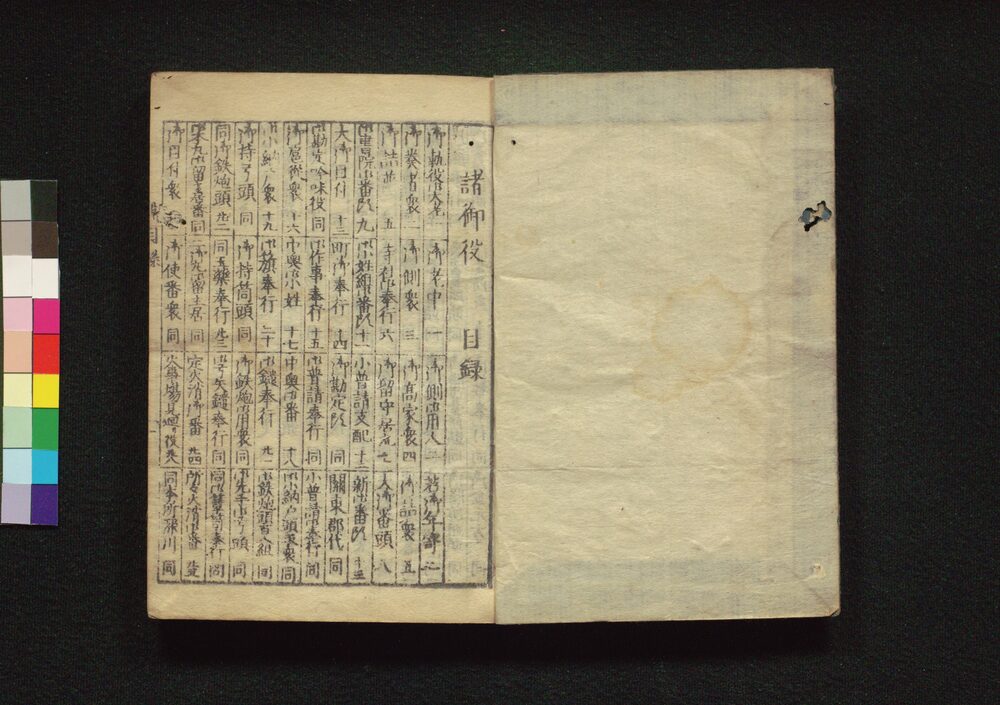 諸御役 目録
御執役大老 御老中 一 御側御用人 二 若御年寄
御奏者衆 二 御側衆 三 御高家衆 四 御詰衆 五
五 寺社御奉行 六 御留守居 七 大御番頭 八
御書院御番頭 九 御小姓組御番頭 十一 小普請支配 十二 新御番頭 十三
大御目付 十三 町御奉行 十四 御勘定頭 同 關東郡代 同
御勘定吟味役 同 御作事奉行 十五 御普請奉行 同 小普請奉行 同
御扈從衆 十六 中奥御小姓 十七 中奥御番 十八 御小納戸頭衆 同
御小納戸衆 十九 御旗奉行 二十 御鑓奉行 廿一 御鉄炮頭百人組 同
御持弓頭 同 御持筒頭 同 御鉄炮御用衆 同 御先手御弓頭 同
同御鉄炮頭 廿二 同玉薬奉行 廿三 御弓矢鑓奉行 同 奉行 同
御留守居番 同 二御丸御留主居 同 定火消御番 廿四 所々火消御番 廿五
御目付衆 御使番衆 同 火事場見廻り役 同本所深川 同
目録